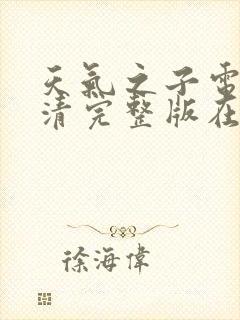 天氣之子電
清完整版在
徐海偉